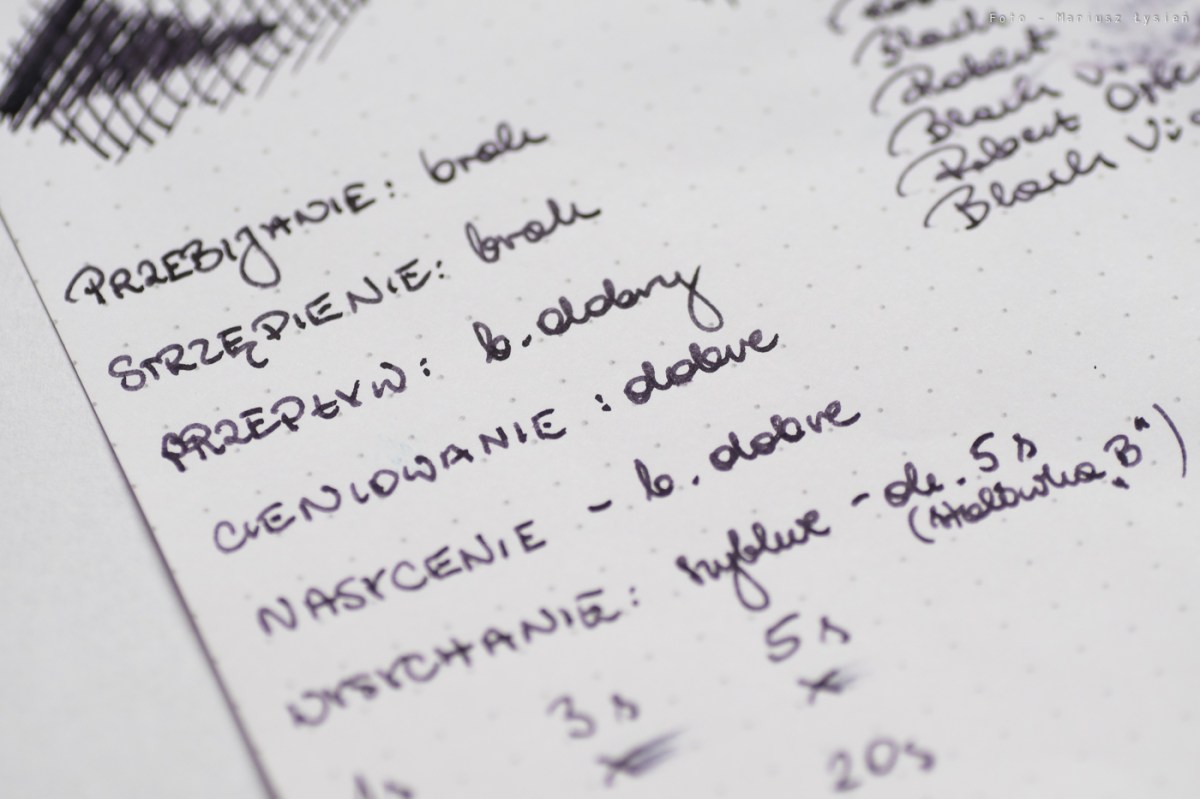 Foto - Mariusz Łysień
Black
Robert
Black Vi
Robert Oster
Black Vio
PRZEBIJANIE: brak
STRZĘPIENIE: brak
PRZEPŁYW: b. dobry
CIENIOWANIE: dobre
NASYCENIE - b. dobre
WYSYCHANIE: szybkie - ok. 5 s
(stalówka „B”)
1s 3s 5s
20s